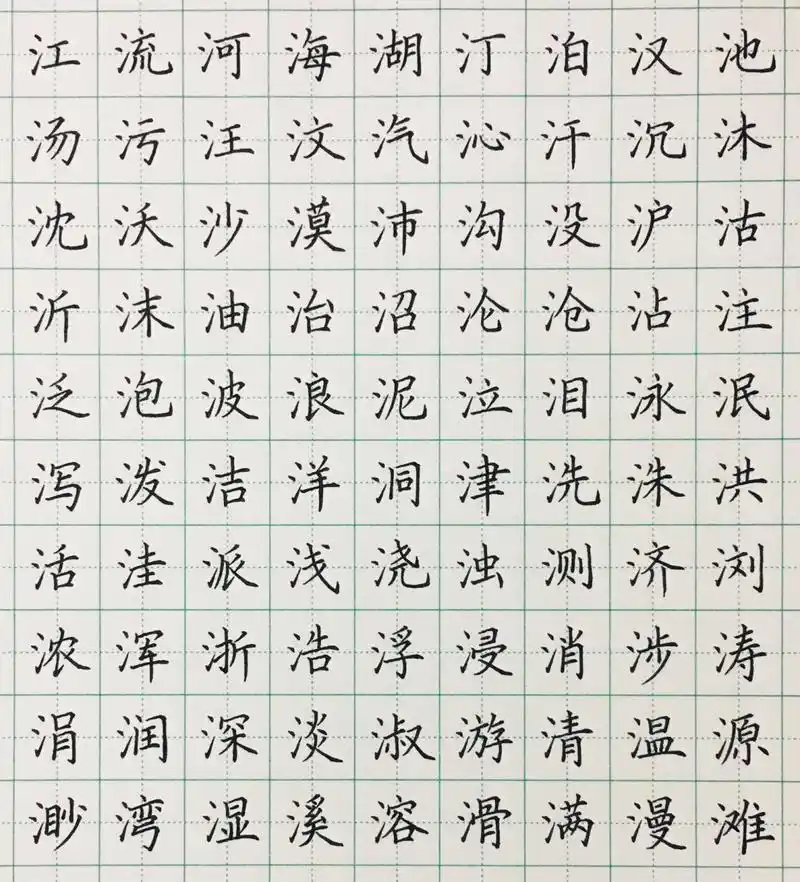 江流河海湖汀泊汉池
汤污汪汶汽沁汗沉沐
沈沃沙漠沛沟没沪沽
沂沫油治沼沦沧沾注
泛泡波浪泥泣泪泳泯
泻泼洁洋洞津洗洙洪
活洼派浅浇浊测济浏
浓浑浙浩浮浸消涉涛
涓润深淡淑游清温源
渺湾湿溪溶滑满漫滩